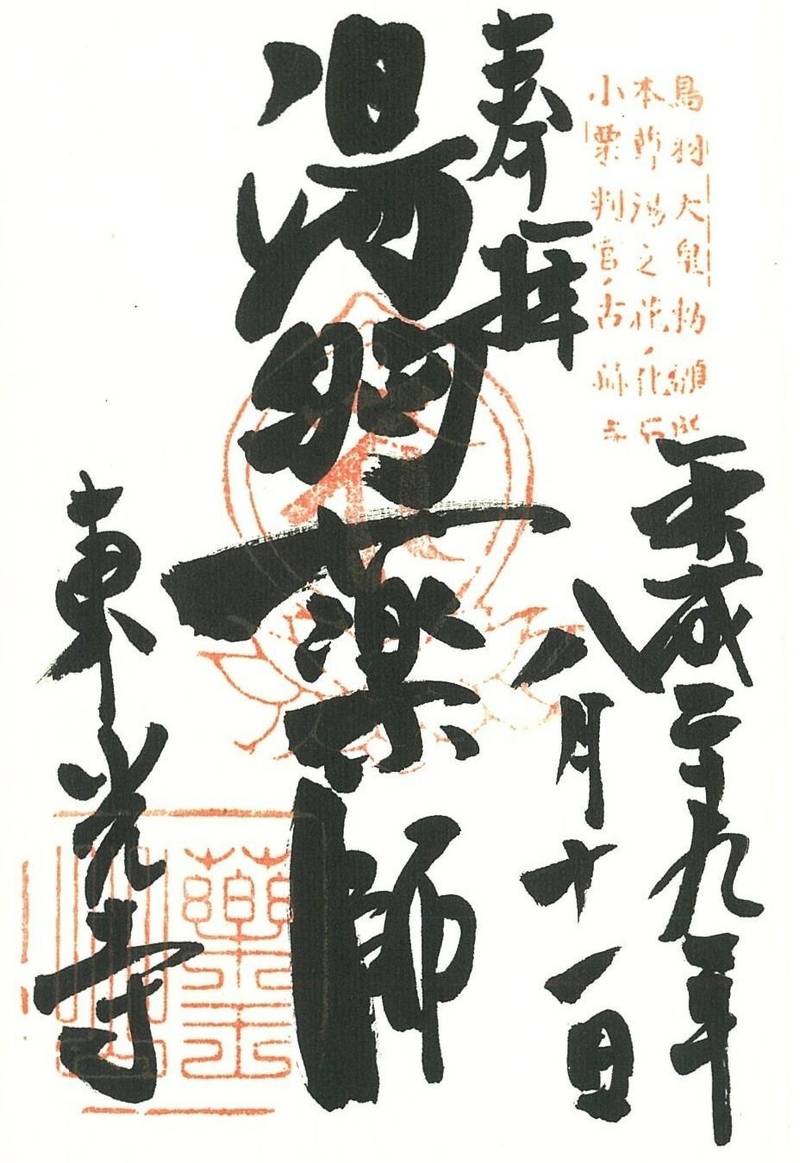 鳥羽天皇勅願所
本尊湯之花化石
小栗判官古跡
奉拝
平成二十九年
八月十一日
湯胸薬師
東光寺
藥王